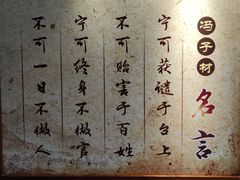 冯子材名言
宁可获谴于台上
不可贻害于百姓
宁可终身不做官
不可一日不做人